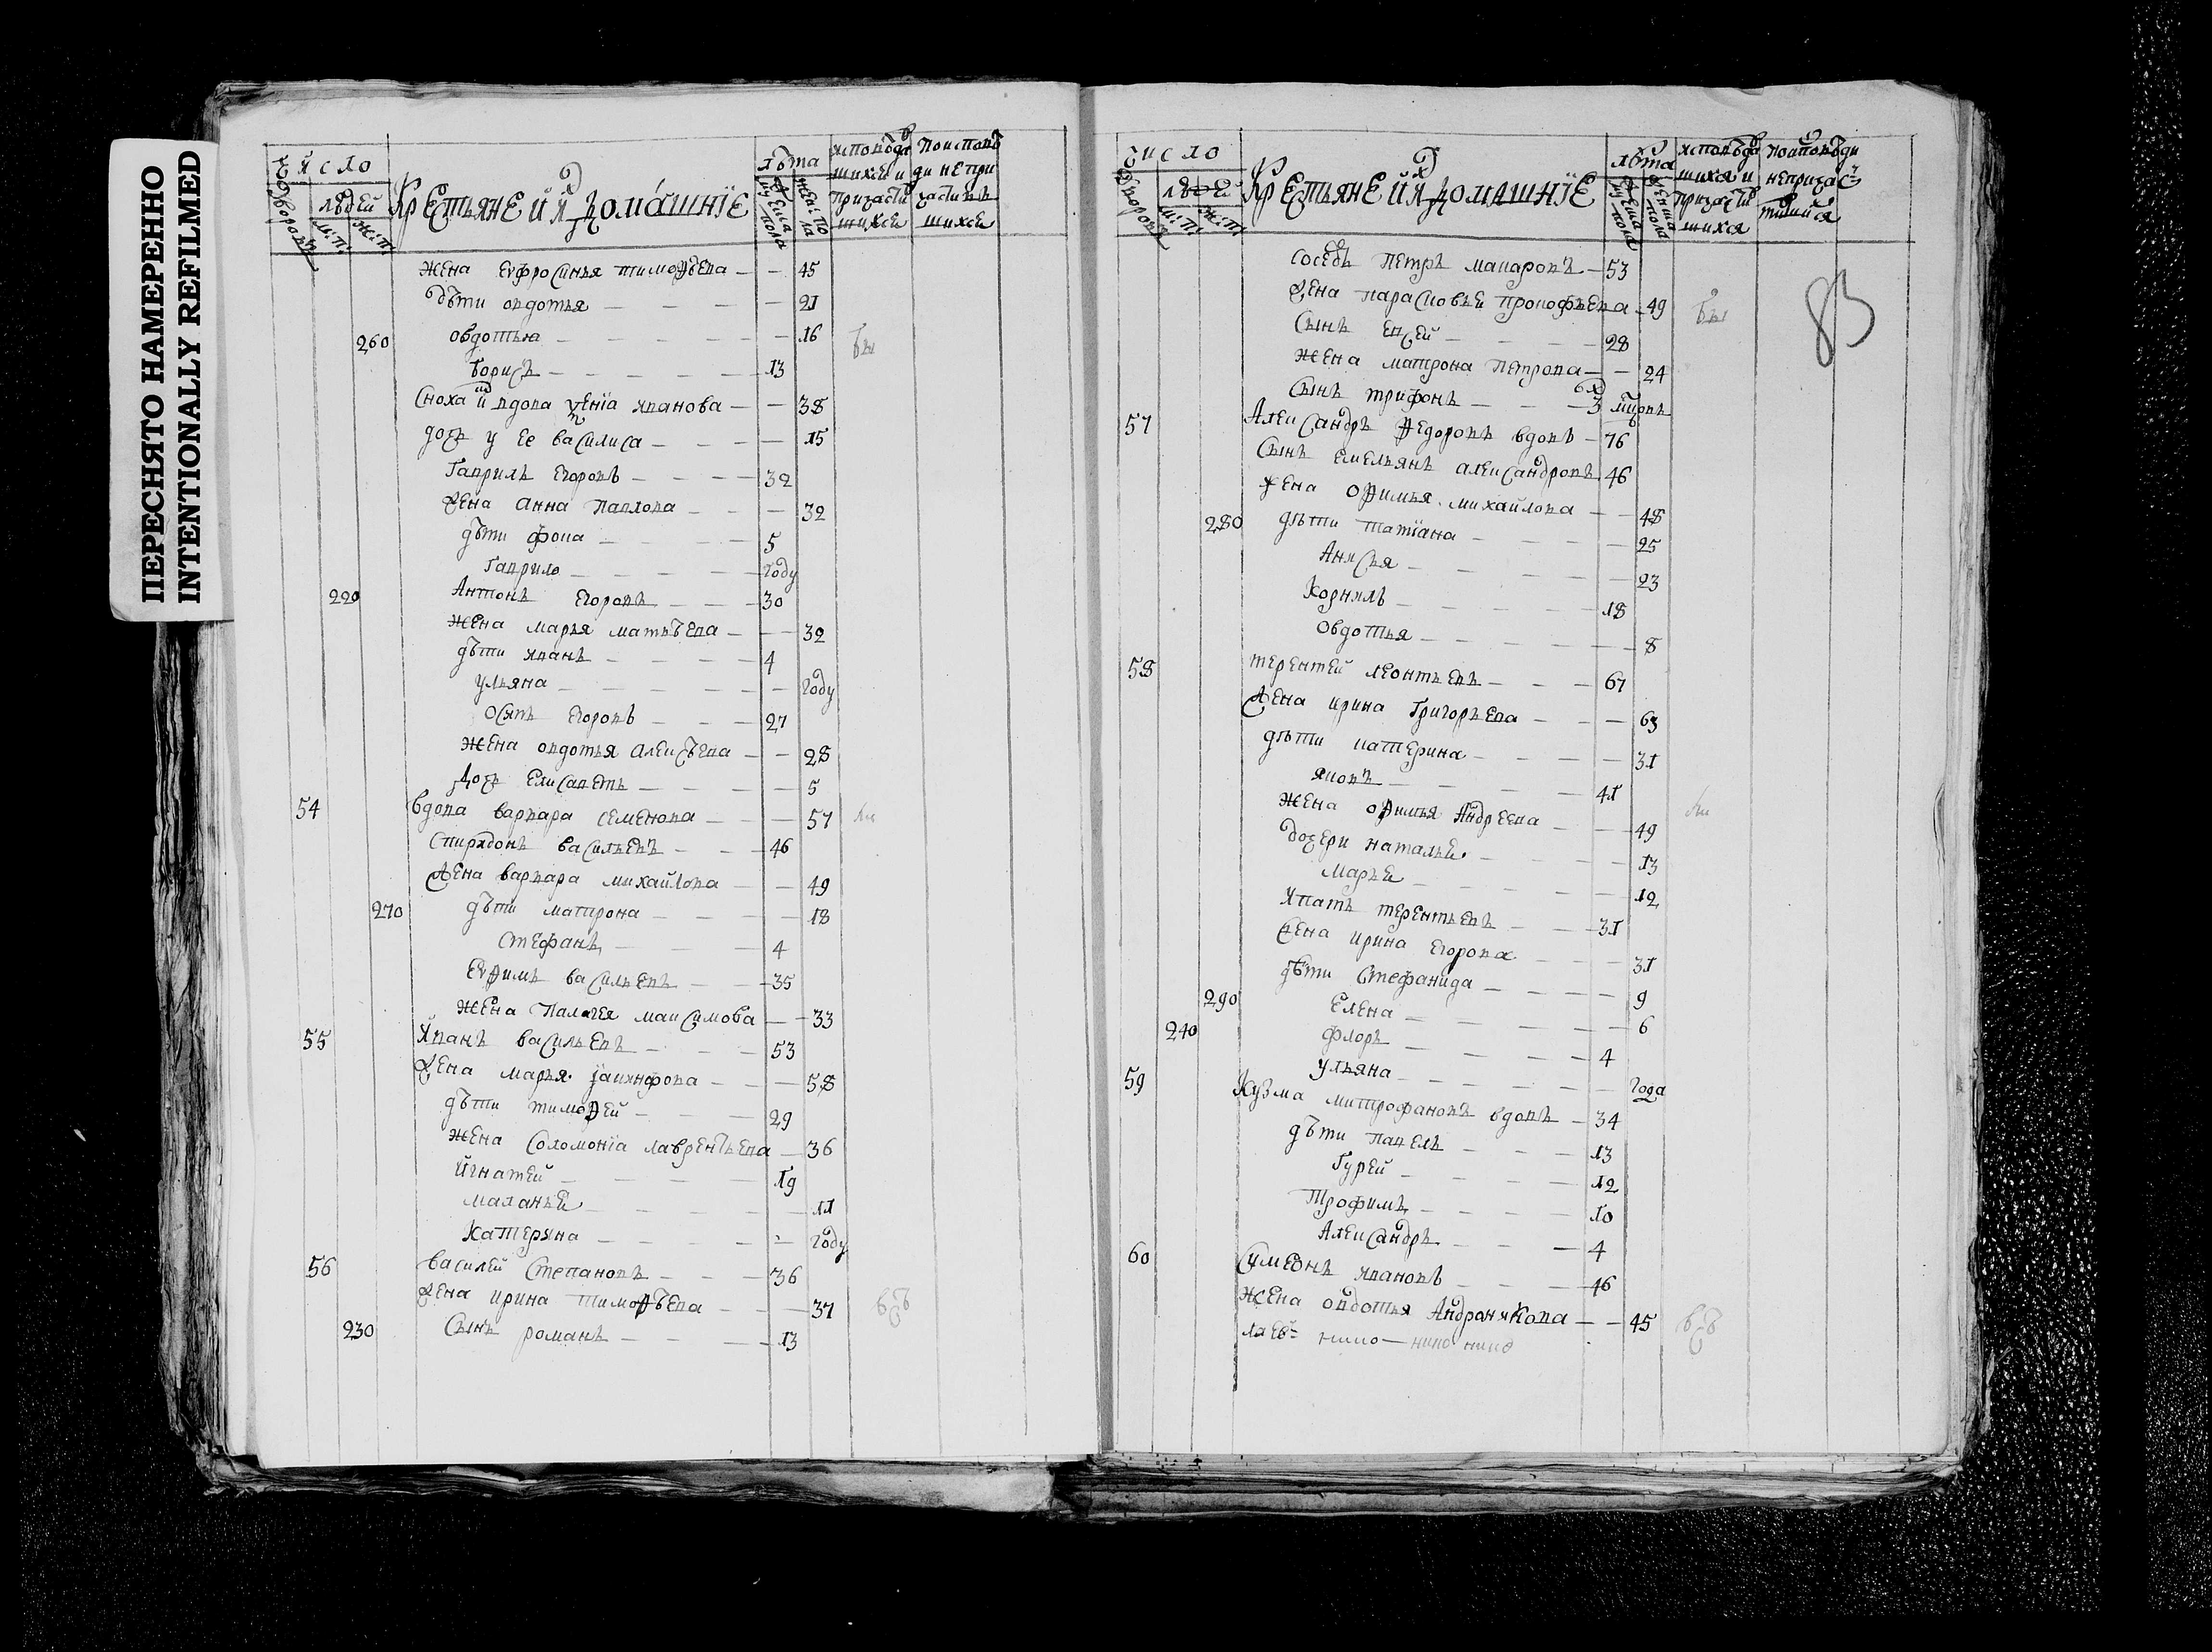 ПЕРЕСНЯТО НАМЕРЕННО
INTENTIONALLY REFILMED
Число
дворовъ
людей
м: п:
ж: п:
Крестьяне и ихъ домашнїе
лѣта
мужеска пола
женс: пола
исповѣдавшихся и причастившихся
по исповѣди не причастившихся
жена еѵфросинья тимоѳѣева — — 45
дѣти овдотья — — 21
260 овдотья — — 16
борисъ — 13
сноха ихъ вдова їванова — — 38
дочь у ее василиса — — 15
гаврилъ егоровъ — 32
жена анна павлова — — 32
дѣти фока — 5
гаврило — году
220 антонъ егоровъ — 30
жена марья матвѣева — — 32
дѣти иванъ — 4
ульяна — — году
осипъ егоровъ — 27
жена овдотья алексѣева — — 28
дочь елисаветъ — — 5
54 вдова варвара семенова — — 57
спиридонъ васильевъ — 46
жена варвара михайлова — — 49
270 дѣти матрона — — 18
стефанъ — 4
еѵѳимъ васильевъ — 35
жена палагея максимова — — 33
55 иванъ васильевъ — 53
жена марья їакинфова — — 58
дѣти тимоѳей — 29
жена соломонїа лаврентьева — 36
игнатей — 19
маланьѣ — 11
катерина — — году
56 василей степановъ — 36
жена ирина тимоѳѣева — — 37
230 сынъ романъ — 13
83
Число
дворовъ
людей
м: п:
ж: п:
Крестьяне и ихъ домашнїе
лѣта
мужеска пола
женска пола
исповѣдавшихся и причастившихся
по исповѣди не причастившихся
соседъ петръ макаровъ — 53
жена парасковья прокофьева — 49
сынъ евсей — 28
жена матрона петрова — — 24
сынъ трифонъ — 3
57 александръ ѳедоровъ вдовъ — 76
сынъ емельянъ александровъ 46
жена оѳимья михайлова — — 48
280 дѣти татїана — — 25
анисья — — 23
корнилъ — 18
овдотья — — 8
58 терентей леонтьевъ — 67
жена ирина григорьева — — 63
дѣти катерина — — 31
яковъ — 41
жена оѳимья андреева — — 49
дочери наталья — — 13
марья — — 12
ипатъ терентьевъ — 31
жена ирина егорова — — 31
дѣти стефанида — — 9
290 елена — — 6
240 флоръ — 4
ульяна — — года
59 кузма митрофановъ вдовъ — 34
дѣти павелъ — 13
гурей — 12
трофимъ — 10
александръ — 4
60 сумеонъ ивановъ — 46
жена овдотья андроникова — — 45